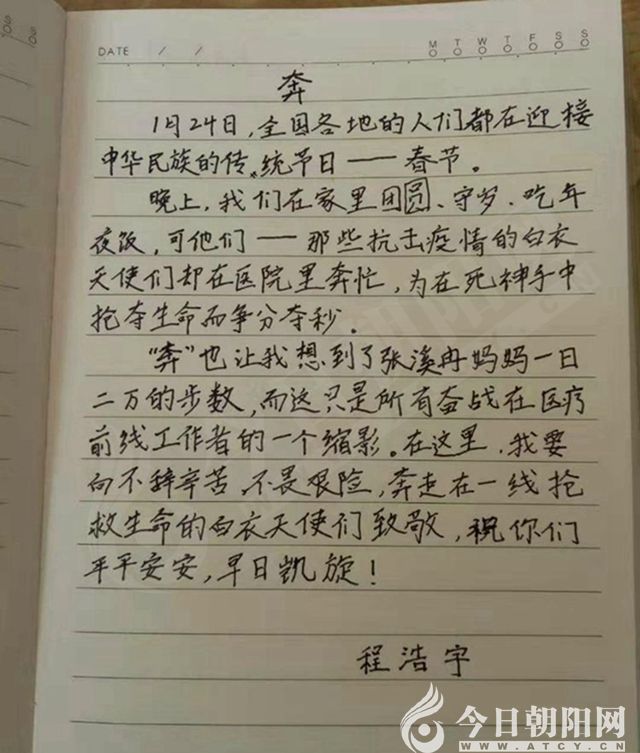 DATE / /
M T W T F S S
奔
1月24日,全国各地的人们都在迎接
中华民族的传统节日——春节。
晚上,我们在家里团圆、守岁、吃年
夜饭,可他们——那些抗击疫情的白衣
天使们却在医院里奔忙,为在死神手中
抢夺生命而争分夺秒。
"奔"也让我想到了张溪冉妈妈一日
二万的步数,而这只是所有奋战在医疗
前线工作者的一个缩影。在这里,我要
向不辞辛苦、不畏艰险,奔走在一线抢
救生命的白衣天使们致敬,祝你们
平平安安,早日凯旋!
程浩宇
今日朝阳网
WWW.ATCY.CN